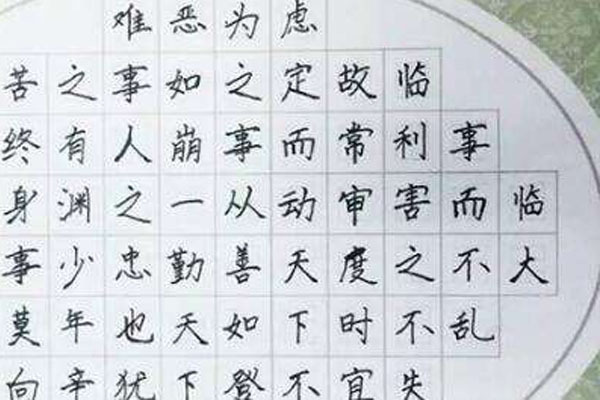 临大
事而不乱
临利害之不失
故常审度时宜
虑定而动天下不
为之事从善如登
恶如崩一勤天下
难事人之忠也犹
之有渊少年辛
苦终身事莫向